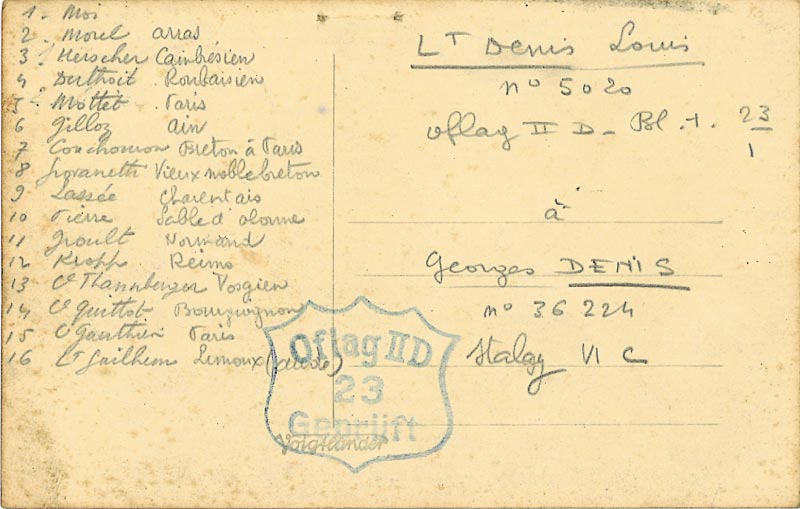 1 - Moi
2 - Morel arras
3 - Herscher Cambrésien
4 - Berthoit Roubaisien
5 - Mottet Paris
6 Gilloz ain
7 Couchouron Breton à Paris
8 Vieux noble breton
9 Lassée Charentais
10 Pierre Sable d'olonne
11 Groult Normand
12 Kropp Reims
13 Ct Thannberger Vosgien
14 Ct Guittot Bourguignon
15 Ct Gauthier Paris
16 Lt Guilhem Limoux (aude)
LT Denis Louis
n° 5020
oflag II D - Bl. 1. 23/1
à
Georges DENIS
n° 36 224
Stalag VI C
Oflag II D
23
Geprüft
Voigtländer